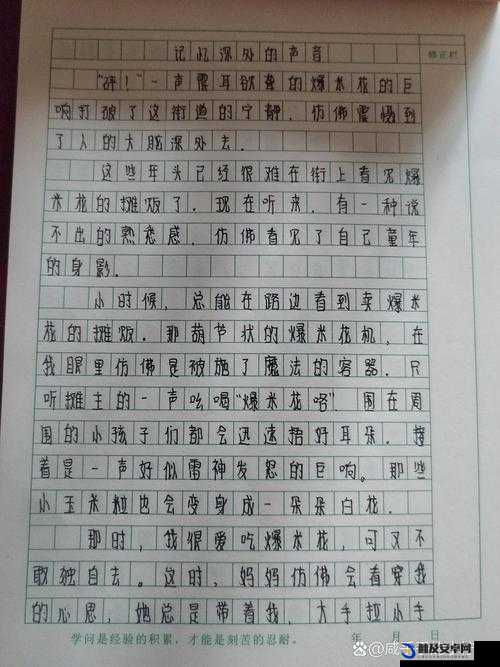 记忆深处的声音
修正栏
“砰！”一声震耳欲聋的爆米花的巨
响打破了这街道的宁静。仿佛震慑到
了人的大脑深处去。
这些年头已经很难在街上看见爆
米花的摊贩了。现在听来，有一种说
不出的熟悉感，仿佛看见了自己童年
的身影。
小时候，总能在路边看到卖爆米
花的摊贩。那葫芦状的爆米花机，在
我眼里仿佛是被施了魔法的容器。只
听摊主的一声吆喝“爆米花咯”围在周
围的小孩子们都会迅速捂好耳朵。接
着是一声好似雷神发怒的巨响。那些
小玉米粒也会变身成一朵朵白花。
那时，我很爱吃爆米花，可又不
敢独自去。这时，妈妈仿佛会看穿我
的心思，她总是带着我，大手拉小手
学问是经验的积累，才能是刻苦的忍耐。 年 月 日
普及安卓网